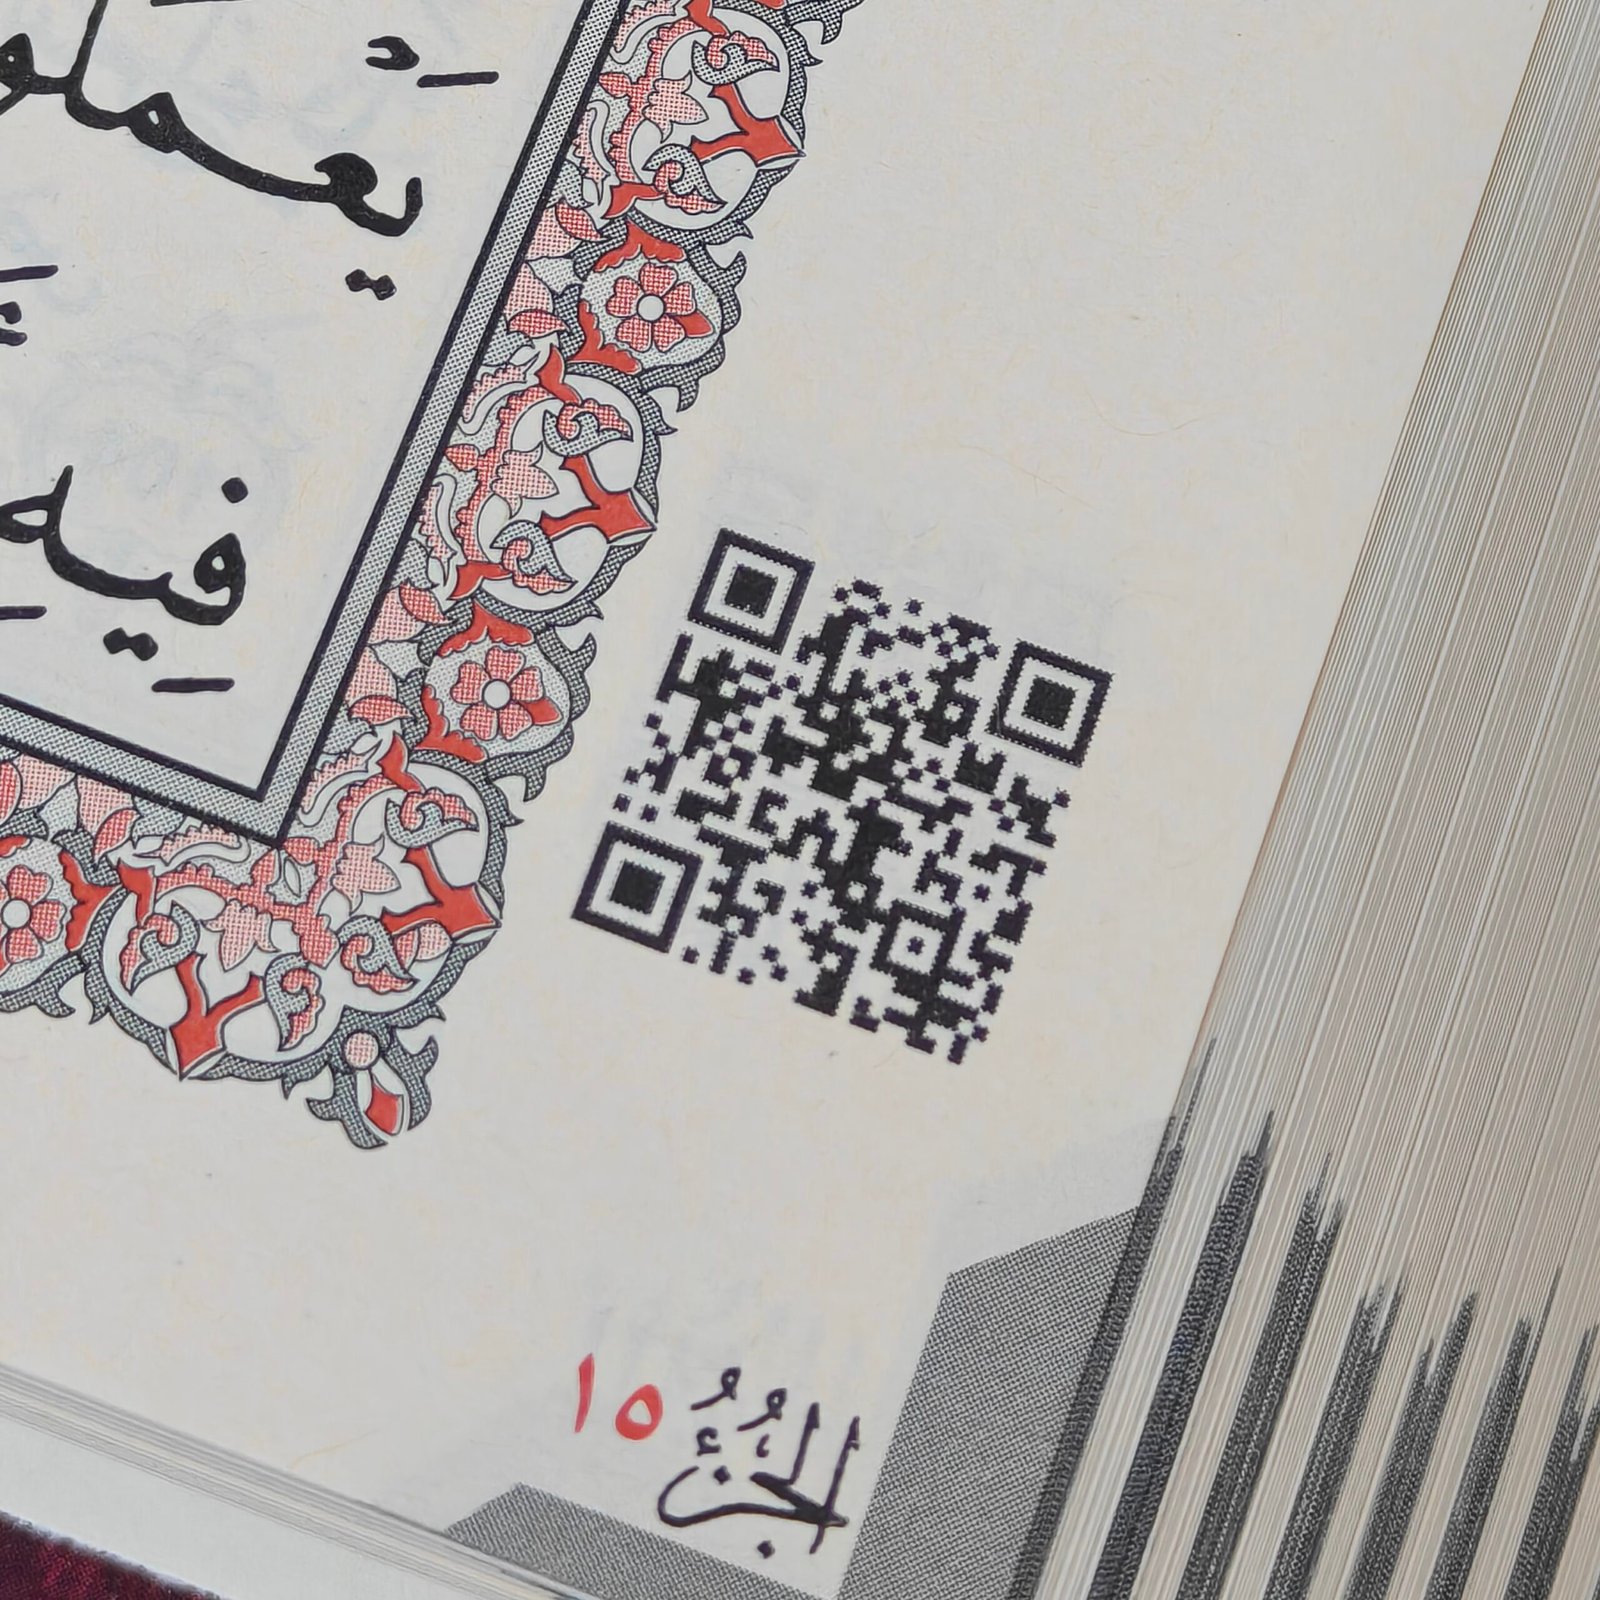 يَعْمَلُو
فِيهِ
الجُزْءُ ١٥